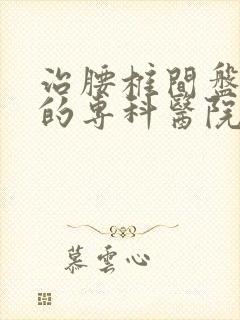 治腰椎間盤
的專科醫院
慕雲心